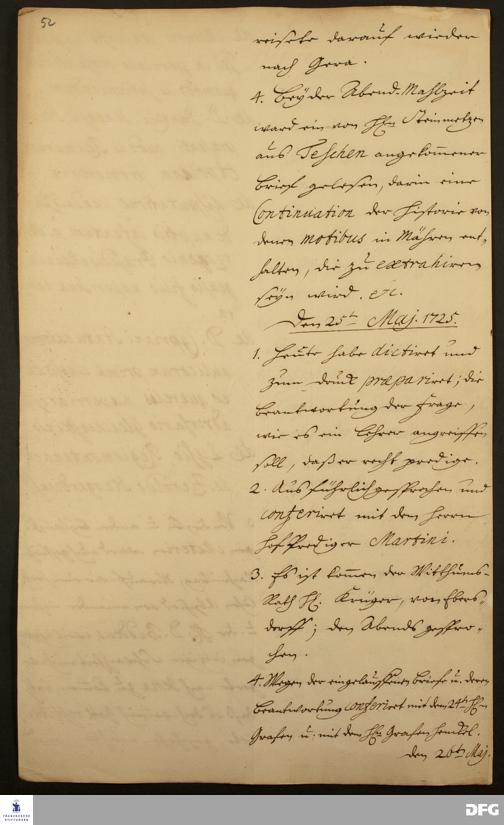 52
reisete darauf wieder
nach Gera.
4. Bey der Abend-Mahlzeit
ward ein von Hn. Steinmetzen
aus Teschen angekommener
Brief gelesen, darin eine
Continuation der Historie von
denen motibus in Mähren ent-
halten, die zu extrahiren
seyn wird. etc.
Den 25ten Maj. 1725.
1. Heute habe dictiret und
zum druck præpariret; die
Beantwortung der Frage,
wie es ein Lehrer angreiffen
soll, daß er recht predige.
2. Ausführlich gesprochen und
conferiret mit dem Herrn
HofPrediger Martini.
3. Es ist kommen der Witthums-
Rath H. Krüger, von Ebers-
dorff; den Abends gespro-
chen.
4. Wegen der eingelauffenen Briefe u. deren
Beantwortung conferiret mit dem 24ten Hn
Grafen u. mit dem Hn Grafen Henckel.
Den 26ten Maj.
FRANCKESCHE
STIFTUNGEN
DFG